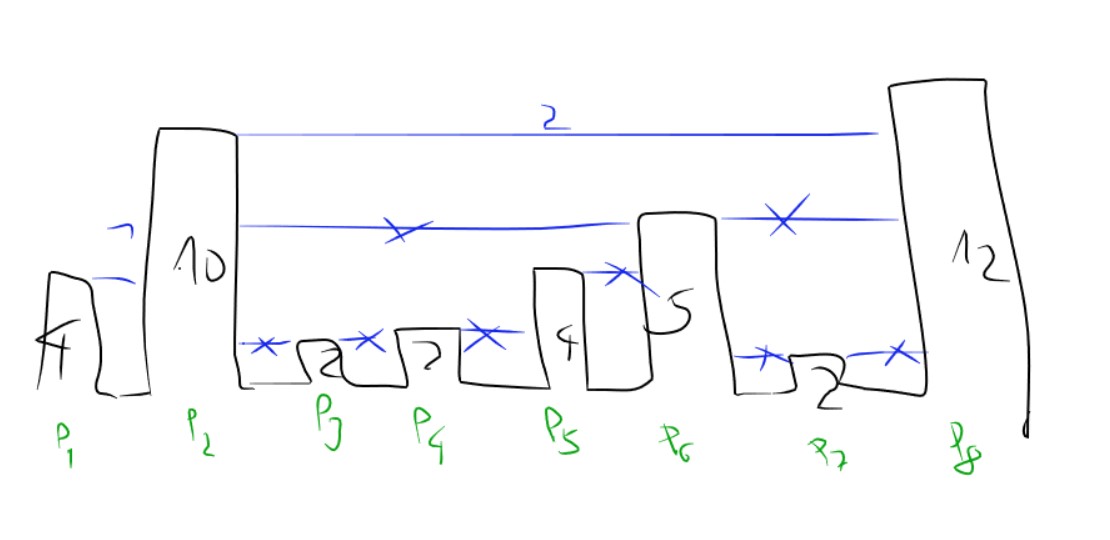 2
1
10 12
4 2 4 5 2
P1 P2 P3 P4 P5 P6 P7 P8